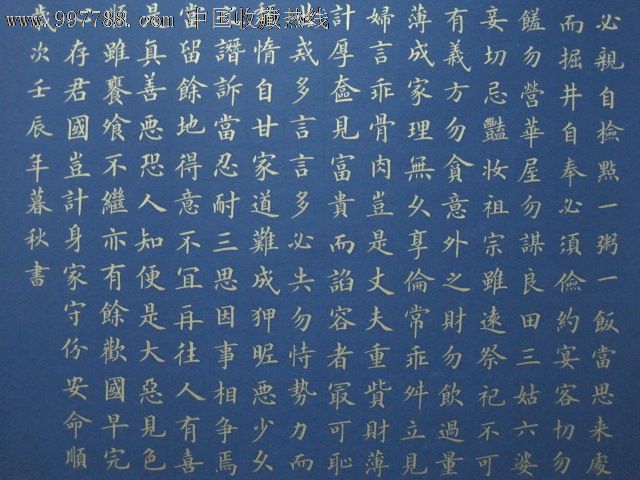 www.997788.com 中国收藏热线
必親自檢點一粥一飯當思来處
而掘井自奉必須儉約宴客切勿
饈勿營華屋勿謀良田三姑六婆
妾切忌豔妆祖宗雖遠祭祀不可
有義方勿貪意外之財勿飲過量
薄成家理無久享倫常乖舛立見
婦言乖骨肉豈是丈夫重貲財薄
計厚奩見富貴而諂容者最可恥
戒多言言多必失勿恃勢力而
惰自甘家道難成狎昵惡少久
譖訴當忍耐三思因事相争焉
當留餘地得意不宜再往人有喜
是真善惡恐人知便是大惡見色
順雖饔飧不繼亦有餘歡國早完
存君國豈計身家守份安命順
歲次壬辰年暮秋書